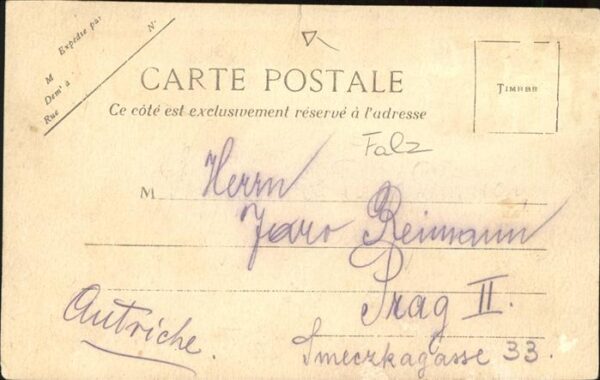 Expédié par
N°
M
Demt à
Rue
CARTE POSTALE
Ce côté est exclusivement réservé à l'adresse
TIMBRE
Falz
M Herrn
Jaro Reimann
Prag II.
Autriche.
Smeczkagasse 33.